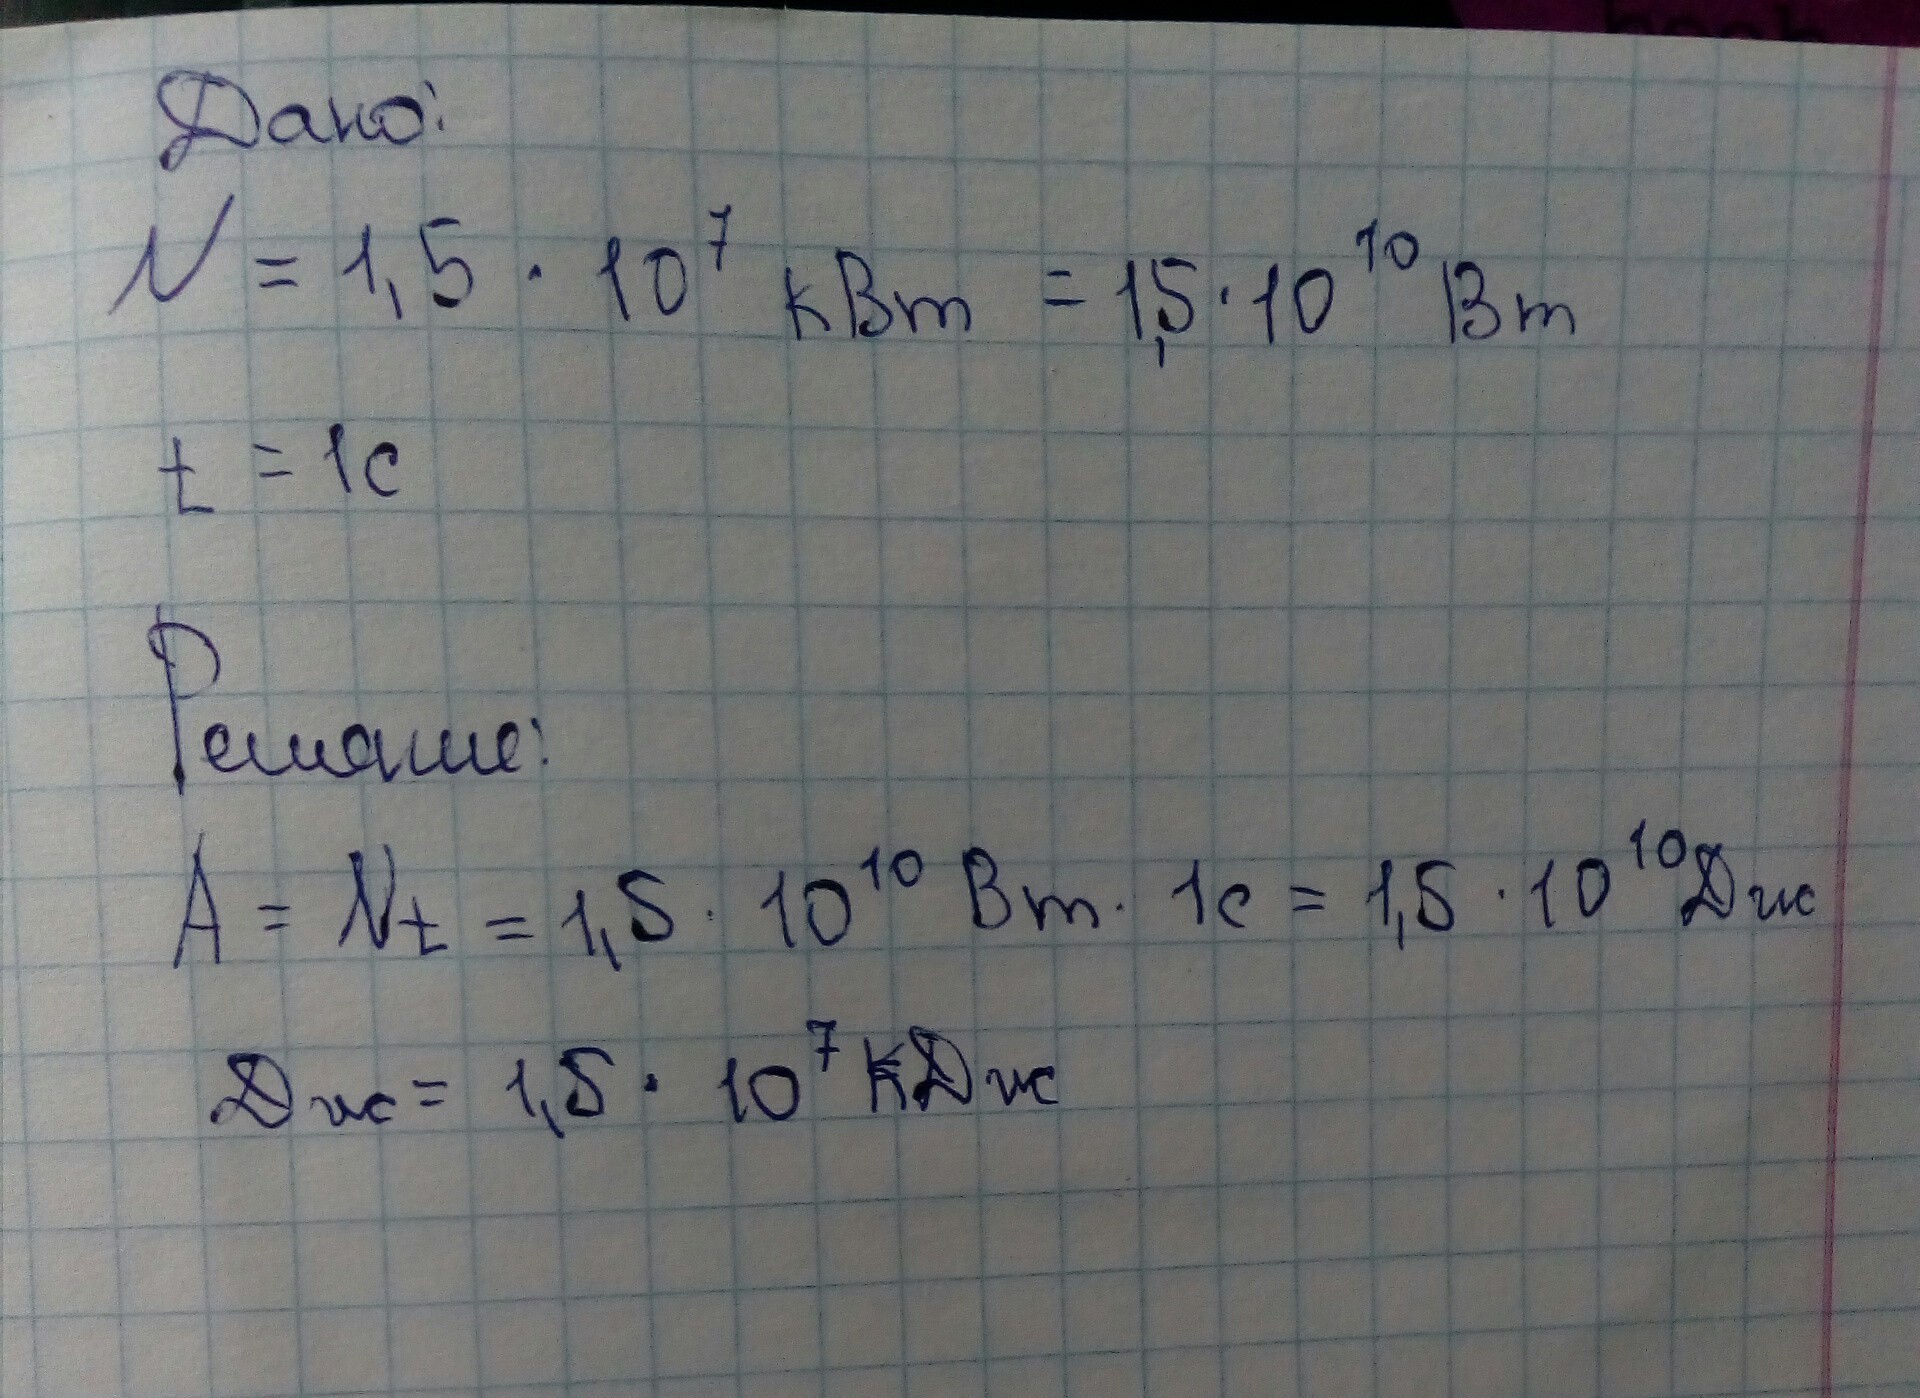 Дано:
N = 1,5 · 10⁷ кВт = 1,5 · 10¹⁰ Вт
t = 1с
Решение:
A = Nt = 1,5 · 10¹⁰ Вт · 1с = 1,5 · 10¹⁰ Дж
Дж = 1,5 · 10⁷ кДж